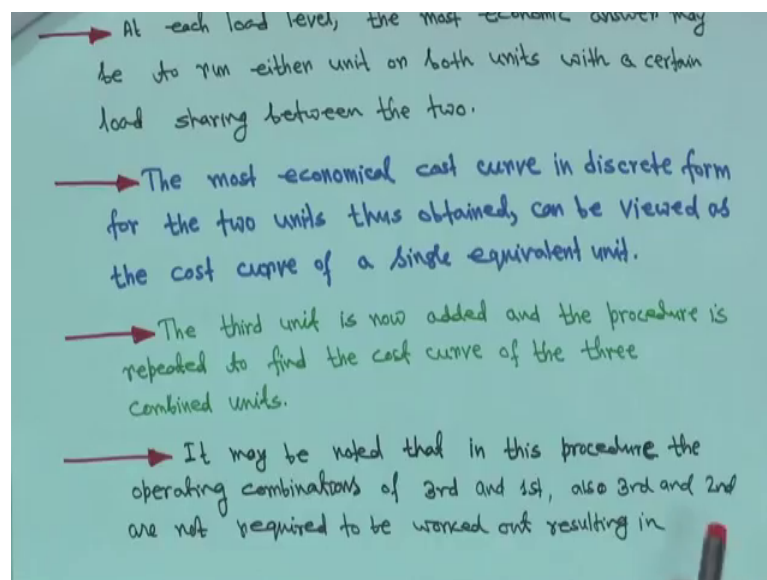 At each load level, the most economic answer may
be to run either unit on both units with a certain
load sharing between the two.
The most economical cost curve in discrete form
for the two units thus obtained, can be viewed as
the cost curve of a single equivalent unit.
The third unit is now added and the procedure is
repeated to find the cost curve of the three
combined units.
It may be noted that in this procedure the
operating combinations of 3rd and 1st, also 3rd and 2nd
are not required to be worked out resulting in